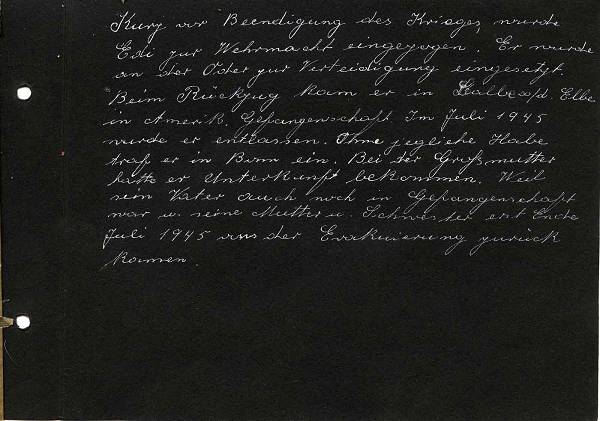 Kurz vor Beendigung des Krieges, wurde
Edi zur Wehrmacht eingezogen. Er wurde
an der Oder zur Verteidigung eingesetzt.
Beim Rückzug kam er in a/d. Elbe
in Amerik. Gefangenschaft. Im Juli 1945
wurde er entlassen. Ohne jegliche Habe
traf er in Bonn ein. Bei der Großmutter
hatte er Unterkunft bekommen. Weil
sein Vater auch noch in Gefangenschaft
war u. seine Mutter u. Schwester erst Ende
Juli 1945 aus der Evakuierung zurück
kamen.